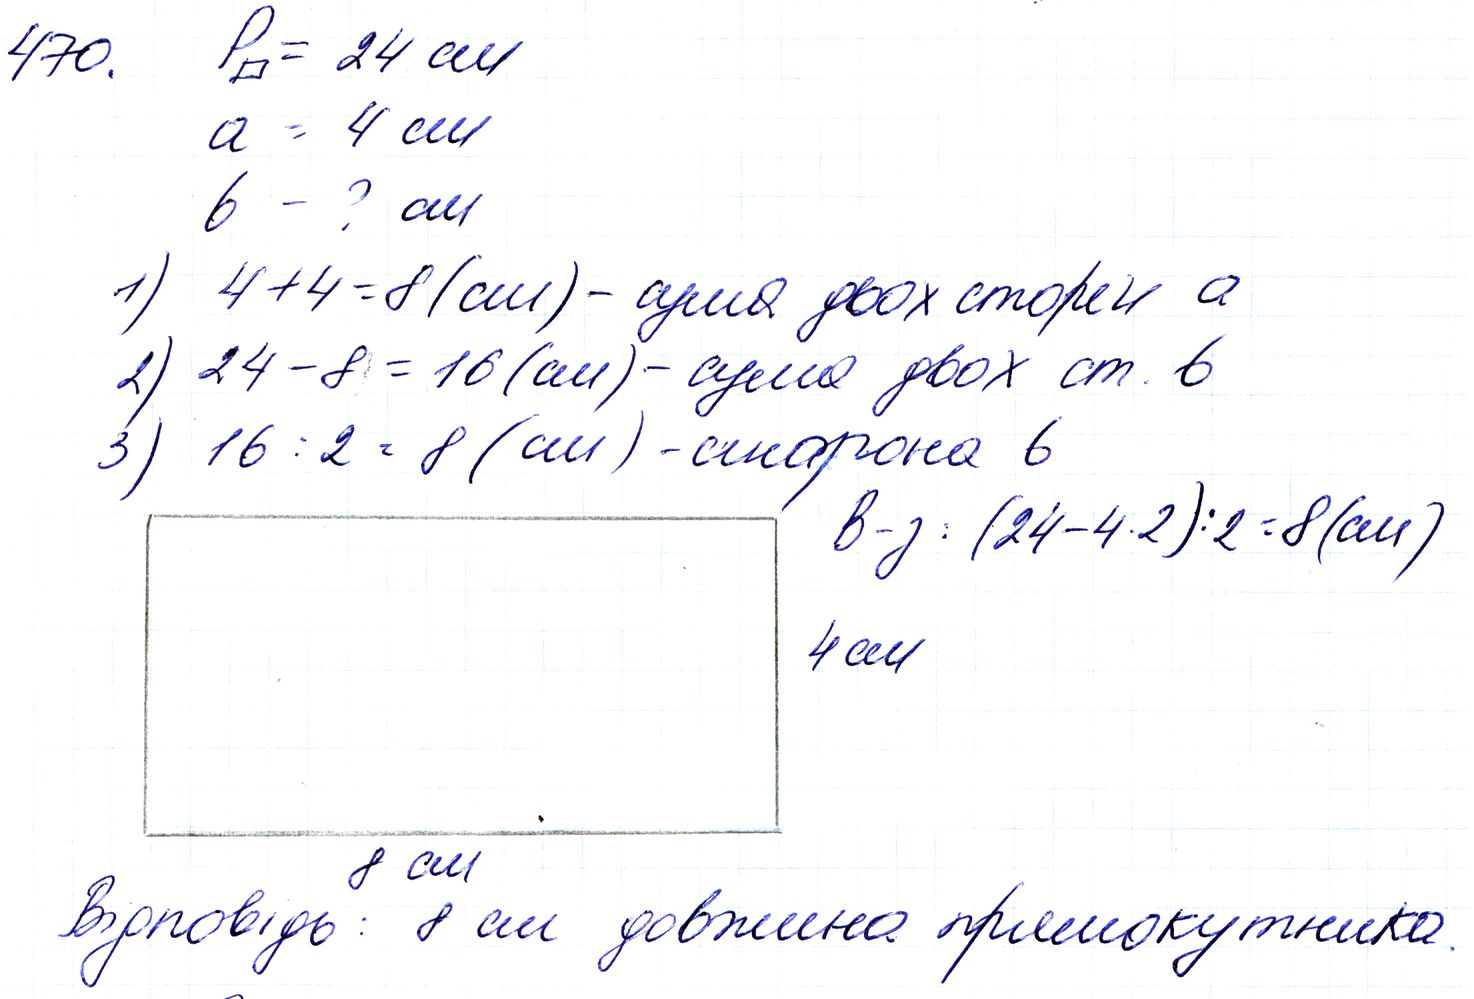 470. P▭ = 24 см
a = 4 см
b - ? см
1) 4+4=8(см) – сума двох сторін a
2) 24 – 8 = 16 (см) – сума двох ст. b
3) 16 : 2 = 8 (см) – сторона b
В-з: (24–4·2):2=8(см)
4 см
8 см
Відповідь: 8 см довжина прямокутника.